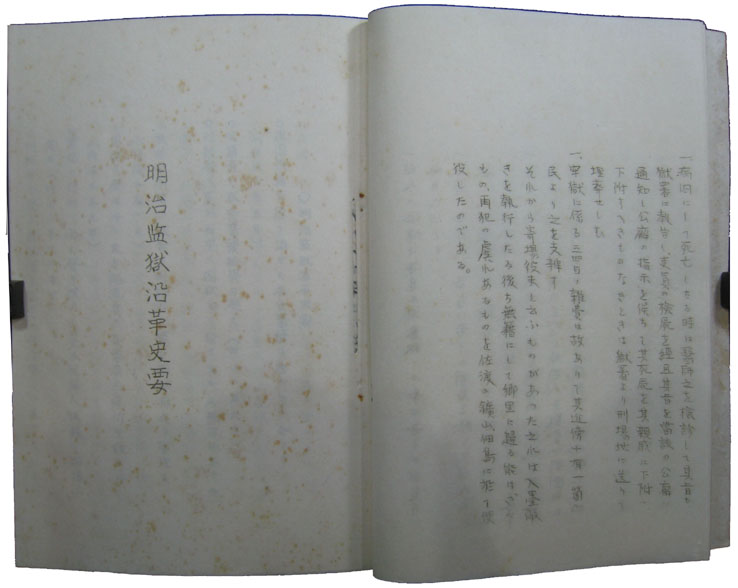 一、病囚にして死亡したる時は医師之を検診して其旨を
獄署に報告し吏員の検展を経再其旨を当該の公廨に
通知し公廨の指示を俟ちて其死屍を其親戚に下附し
下附すべきものなきときは獄署より刑場地に送りて
埋葬せしむ
一、牢獄に係る 雑費は故ありて其近傍十有一箇
民より之を支辨す
それから寄場役末と云ふものがあった之れは入墨敲
きを執行したる後ち無籍にして郷里に帰る能はざる
もの、再犯の虞れあるものを佐渡の に於て使
役したのである。
明治监獄沿革史要